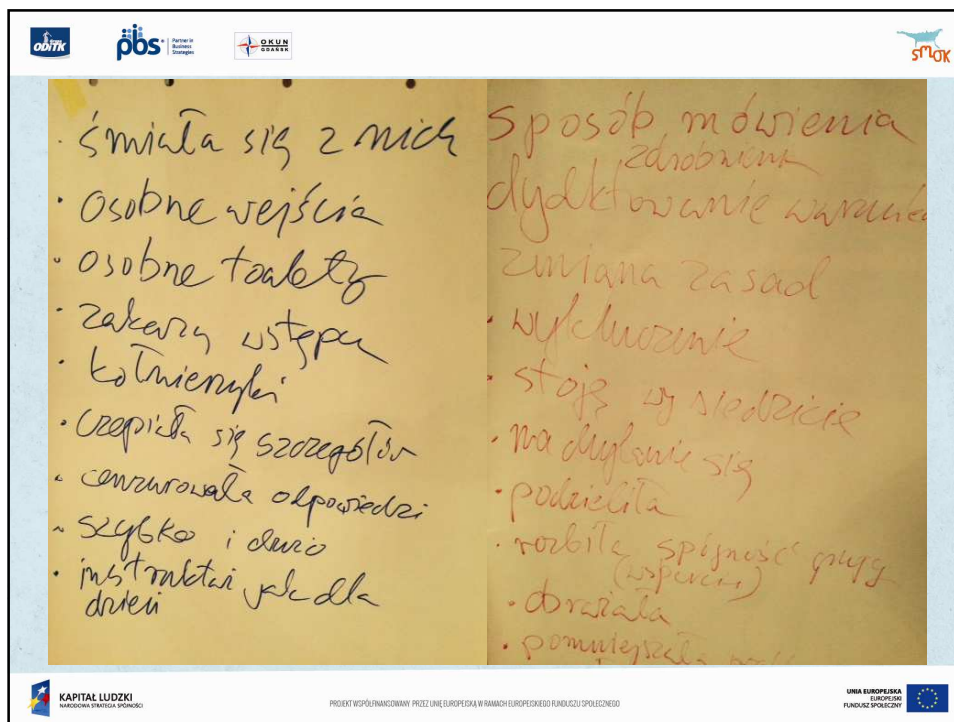 Grupa
ODiTK
pbs
Partner in
Business
Strategies
OKUN
GDAŃSK
SMOK
· śmiała się z nich
· osobne wejścia
· osobne toalety
· zakazy wstępu
· kołnierzyki
· czepiała się szczegółów
· cenzurowała odpowiedzi
~ szybko i dużo
· instruktaż jak dla
dzieci
sposób mówienia
zdrobnienia
dydktowanie warunków
zmiana zasad
· wykluczenie
· stoję wy siedzicie
· nachylanie się
· podzieliła
· rozbiła spójność grupy
(wsparcie)
· obrażała
· pomniejszała
KAPITAŁ LUDZKI
NARODOWA STRATEGIA SPÓJNOŚCI
PROJEKT WSPÓŁFINANSOWANY PRZEZ UNIĘ EUROPEJSKĄ W RAMACH EUROPEJSKIEGO FUNDUSZU SPOŁECZNEGO
UNIA EUROPEJSKA
EUROPEJSKI
FUNDUSZ SPOŁECZNY